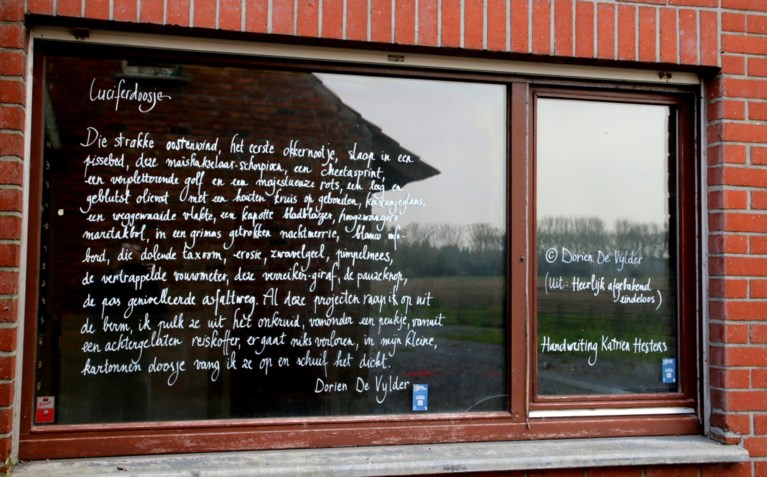 Luciferdoosje
Die strakke oostenwind, het eerste okkernootje, slaap in een
pissebed, deze maïshakselaar-schorpioen, een cheetasprint,
een verpletterende golf en een majestueuze rots, een leeg en
geblutst olievat met een houten kruis op gebonden, kastanjeglans,
een weggemaaide vlakte, een kapotte bladblazer, hoogzwangere
maretakbol, in een grimas getrokken nachtmerrie, blanco info-
bord, die dolende taxoom, erosie, zwavelgeel, pimpelmees,
de vertrappelde vouwmeter, deze verreiker-giraf, de pauzeknop,
de pas genivelleerde asfaltweg. Al deze projecten raap ik op uit
de berm, ik pulk ze uit het onkruid, vanonder een peukje, vanuit
een achtergelaten reiskoffer, er gaat niks verloren, in mijn kleine,
kartonnen doosje vang ik ze op en schuif het dicht.
Dorien De Vylder
© Dorien De Vylder
(uit: Heerlijk afgebakend
eindeloos)
Handwriting Katrien Hestens